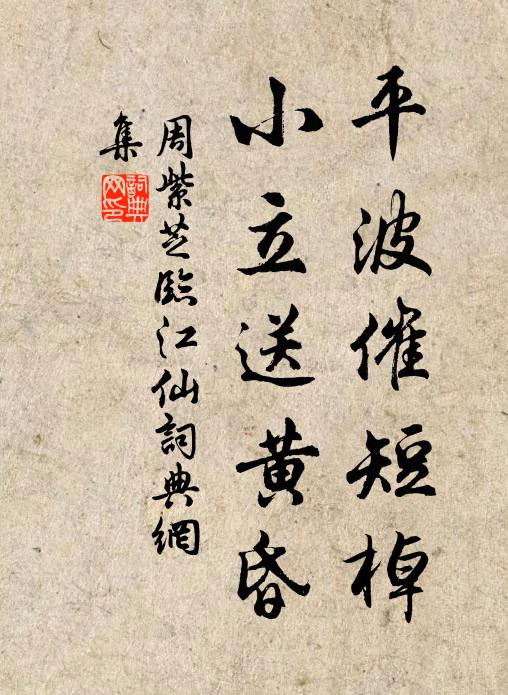 平波催短棹
小立送黄昏
周紫芝臨江仙詞典網
集
詞典
网印